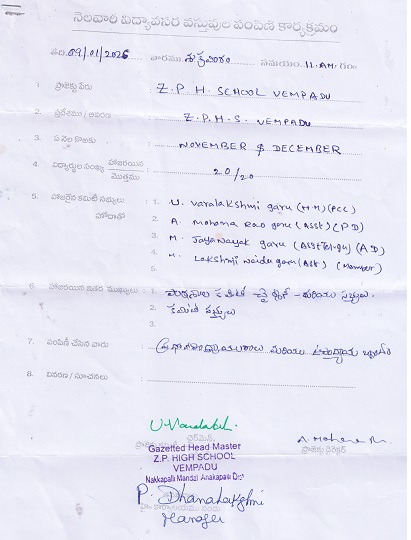 నెలవారి విద్యావసర వస్తువుల పంపిణీ కార్యక్రమం
తేది: 09/01/2026 వారము శుక్రవారం సమయం: 11.AM. గం
1. ప్రాజెక్టు పేరు : Z.P.H. SCHOOL VEMPADU
2. ప్రదేశము / వివరణ : Z.P.H.S. VEMPADU
3. ఏ నెల కొరకు : NOVEMBER & DECEMBER
4. విద్యార్థుల సంఖ్య హాజరయిన మొత్తము : 20/20
5. హాజరైన కమిటీ సభ్యులు హోదాతో : 1. U. Varalakshmi garu (H-M) (PCC)
2. A. Mohana Rao garu (Asst) (PD)
3. M. Jaya Nayak garu (Asst Telugu) (AD)
4. M. Lakshmi Naidu garu (Asst) (Member)
5.
6. హాజరయిన ఇతర ముఖ్యులు : 1. పాఠశాల కమిటీ చైర్మన్ - మరియు సభ్యులు.
2. కమిటీ సభ్యులు
3.
7. పంపిణీ చేసిన వారు : ప్రధానోపాధ్యాయురాలు మరియు ఉపాధ్యాయ బృందం
8. వివరణ / సూచనలు :
U. Varalakshmi
ప్రాజెక్టు కమిటీ చైర్మన్
Gazetted Head Master
Z.P. HIGH SCHOOL
VEMPADU
Nakkapalli Mandal Anakapalli Dist
A Mohana R
ప్రాజెక్టు డైరెక్టర్
P. Dhanalakshmi
Manager